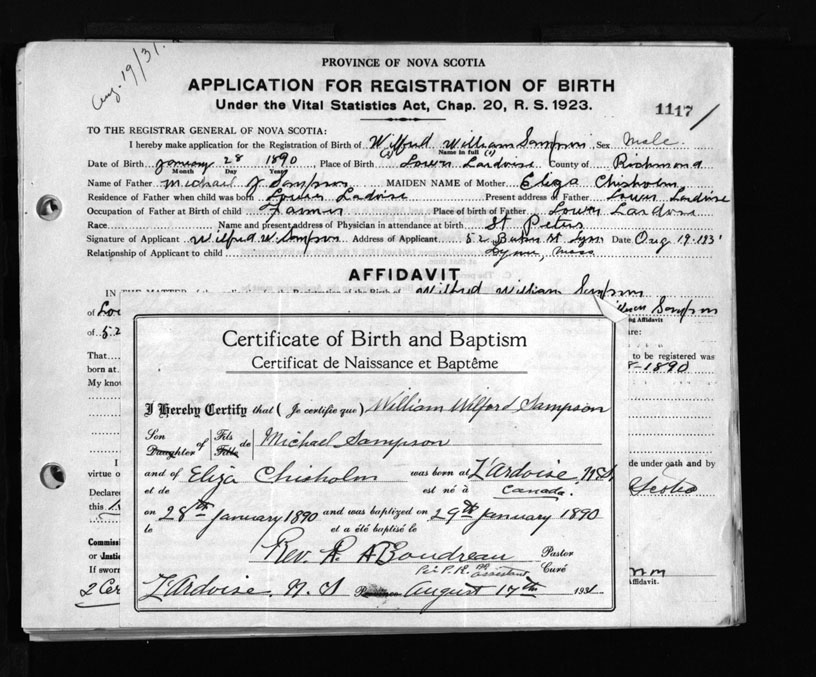 Aug. 19/31.
PROVINCE OF NOVA SCOTIA
APPLICATION FOR REGISTRATION OF BIRTH
Under the Vital Statistics Act, Chap. 20, R. S. 1923.
1117
TO THE REGISTRAR GENERAL OF NOVA SCOTIA:
I hereby make application for the Registration of Birth of Wilfred William Sampson Sex Male
Name in full (1)
Date of Birth January 28 1890 Place of Birth Lower Lardoise County of Richmond
Month Day Year
Name of Father Michael J. Sampson MAIDEN NAME of Mother Eliza Chisholm
Residence of Father when child was born Lower Ladoise Present address of Father Lower Lardoise
Occupation of Father at Birth of child Farmer Place of birth of Father Lower Lardoise
Race Name and present address of Physician in attendance at birth St Peters
Signature of Applicant Wilfred W. Sampson Address of Applicant 52 St Lynn Date Aug 19-193
Relationship of Applicant to child Lynn, Mass
AFFIDAVIT
Wilfred William Sampson
of Lo Sampson
ng Affidavit
of 52 re:
That to be registered was
born at 8-1890
My know
I de under oath and by
virtue o
Declared
this
Commissi
or Justic
If sworn
2 Cer ffidavit.
Certificate of Birth and Baptism
Certificat de Naissance et Baptême
I Hereby Certify that (Je certifie que) William Wilford Sampson
Son Daughter of Fils Fille de Michael Sampson
and of Eliza Chisholm was born at L'Ardoise N.S.
et de est né à Canada.
on 28th January 1890 and was baptized on 29th January 1890
le et a été baptisé le
Rev. R. A Boudreau Pastor
Curé
assistant
L'Ardoise, N. S August 17th 1931